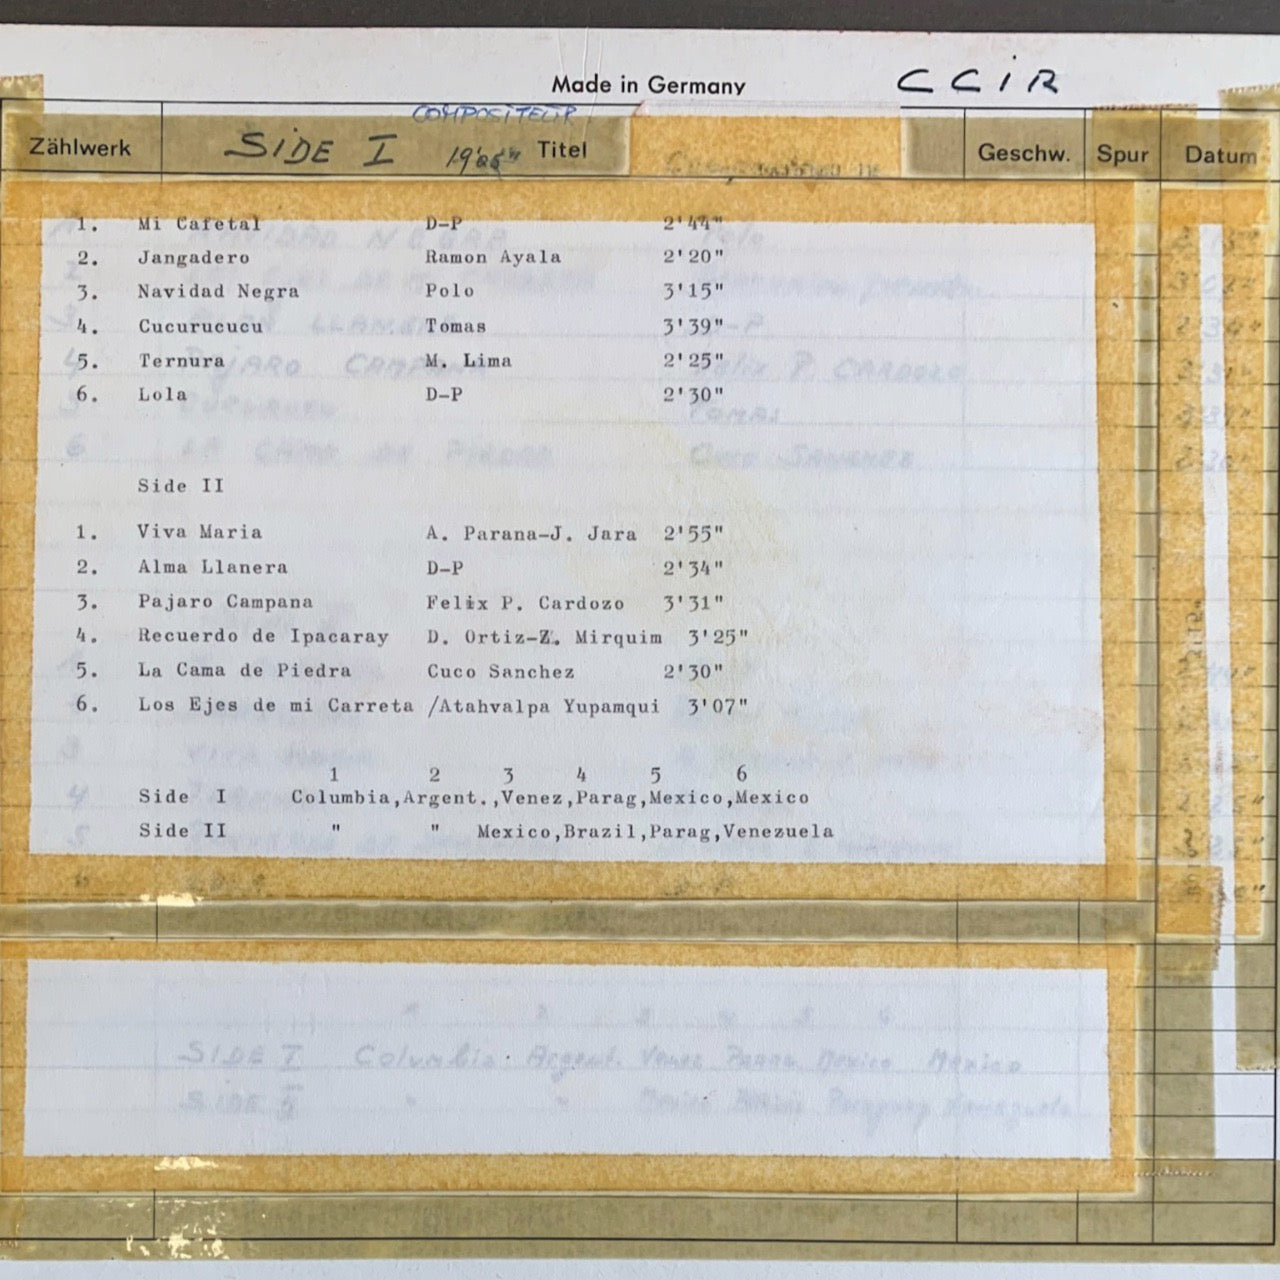 Made in Germany CCiR
COMPOSITEUR
Zählwerk SiDE I Titel Geschw. Spur Datum
1. Mi Cafetal D-P 2'44"
2. Jangadero Ramon Ayala 2'20"
3. Navidad Negra Polo 3'15"
4. Cucurucucu Tomas 3'39"
5. Ternura M. Lima 2'25"
6. Lola D-P 2'30"
Side II
1. Viva Maria A. Parana-J. Jara 2'55"
2. Alma Llanera D-P 2'34"
3. Pajaro Campana Felix P. Cardozo 3'31"
4. Recuerdo de Ipacaray D. Ortiz-Z. Mirquim 3'25"
5. La Cama de Piedra Cuco Sanchez 2'30"
6. Los Ejes de mi Carreta /Atahvalpa Yupamqui 3'07"
1 2 3 4 5 6
Side I Columbia,Argent.,Venez,Parag,Mexico,Mexico
Side II " " Mexico,Brazil,Parag,Venezuela
SIDE I Columbia. Argent. Venez Parag Mexico Mexico
SIDE II " " Mexico Brazil Paraguay Venezuela